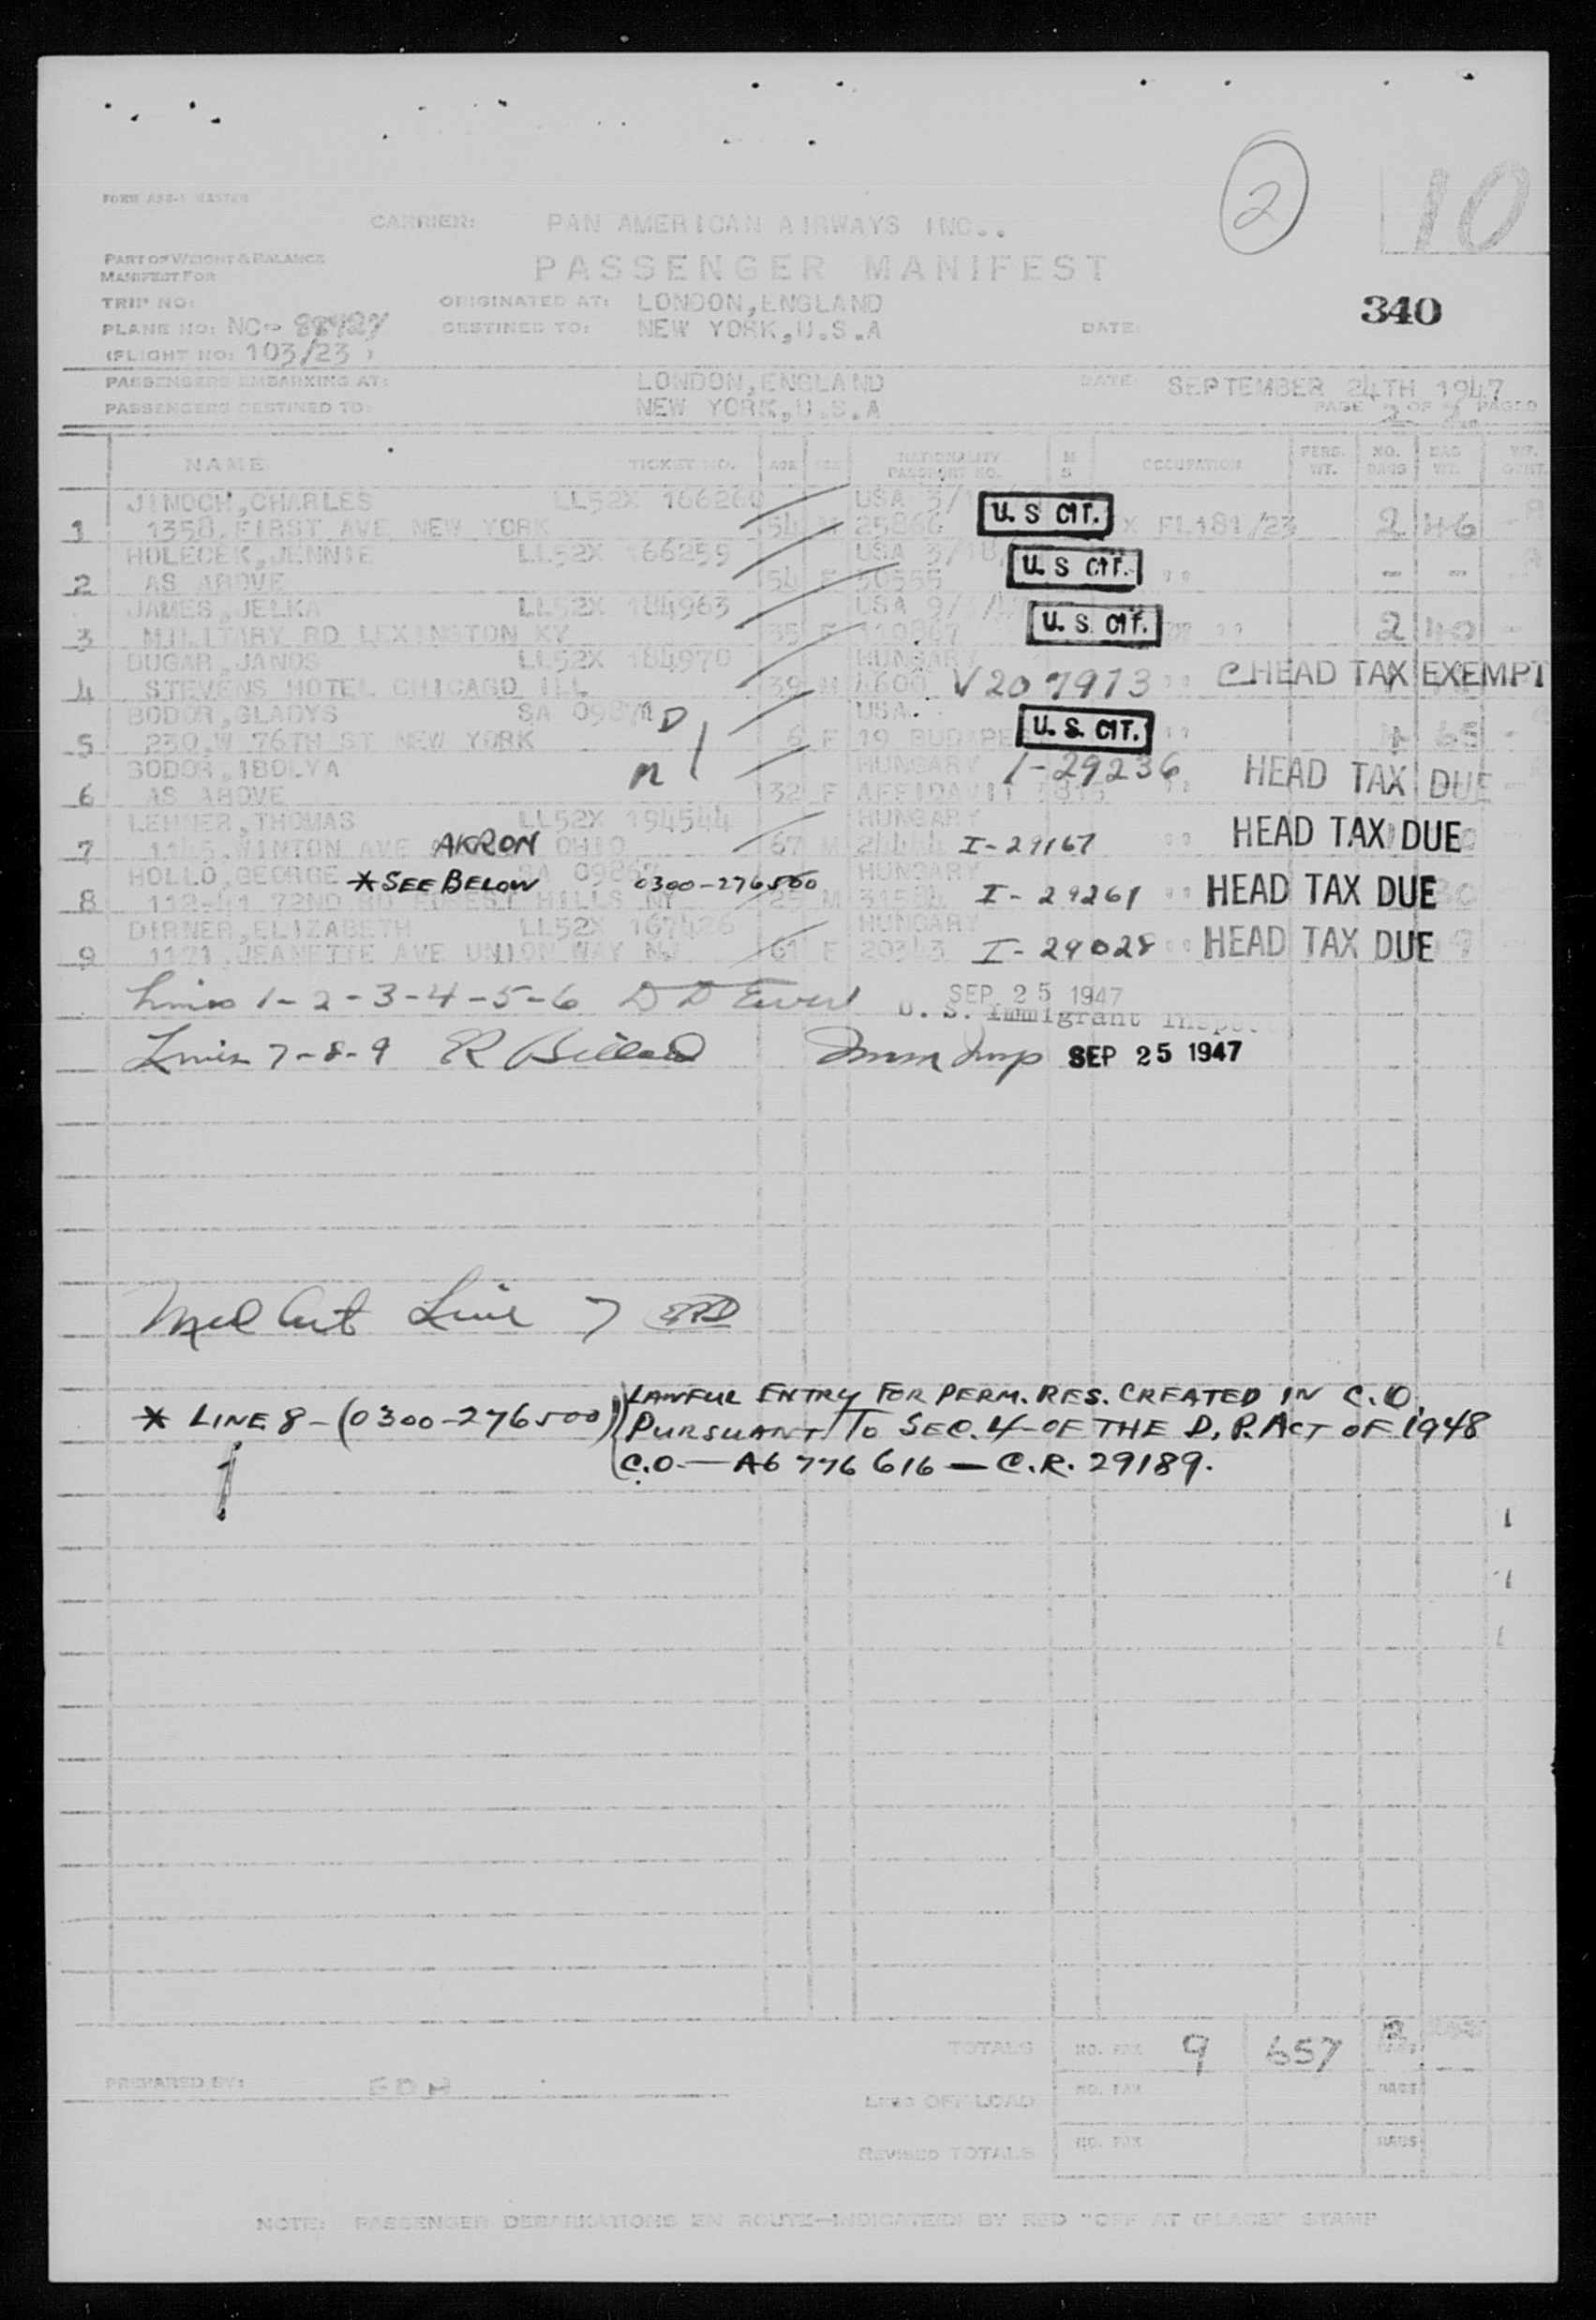 2
10
CARRIER: PAN AMERICAN AIRWAYS INC..
PART OF WEIGHT & BALANCE
MANIFEST FOR
PASSENGER MANIFEST
TRIP NO:
ORIGINATED AT: LONDON, ENGLAND
340
PLANE NO: NC-
DESTINED TO: NEW YORK, U.S.A
DATE:
(FLIGHT NO: 103/23 )
PASSENGERS EMBARKING AT: LONDON, ENGLAND
DATE: SEPTEMBER 24TH 1947
PASSENGERS DESTINED TO: NEW YORK, U.S.A
PAGE OF PAGES
NAME TICKET NO. AGE SEX NATIONALITY PASSPORT NO. M S OCCUPATION PERS. WT. NO. BAGS BAG WT.
JINOCH, CHARLES LL52X 166260 USA
1 1358. FIRST AVE NEW YORK 54 M U. S CIT. 2 46
HOLECEK, JENNIE LL52X 166259 USA
2 AS ABOVE 54 F U. S CIT. - -
JAMES, JELKA LL52X 184963 USA
3 MILITARY RD LEXINGTON KY 35 F U. S. CIT. 2 40
DUGAR, JANOS LL52X 184970 HUNGARY
4 STEVENS HOTEL CHICAGO ILL 39 M V 207973 HEAD TAX EXEMPT
BODOR, GLADYS USA.
5 230. W 76TH ST NEW YORK 6 F 19 U. S. CIT.
BODOR, IBOLYA HUNGARY I-29236 HEAD TAX DUE
6 AS ABOVE 32 F AFFIDAVIT
LEHNER, THOMAS LL52X 194544 HUNGARY
7 WINTON AVE AKRON OHIO 67 M I-29167 HEAD TAX DUE
HOLLO, GEORGE * SEE BELOW 0300-276500 HUNGARY
8 112-41 72ND RD FOREST HILLS NY 25 M I-29261 HEAD TAX DUE
DIRNER, ELIZABETH LL52X 167426 HUNGARY
9 1121. JEANETTE AVE UNION WAY NJ 61 F I-29028 HEAD TAX DUE
Lines 1-2-3-4-5-6
SEP 25 1947
U. S. Immigrant
Lines 7-8-9
SEP 25 1947
Med Cert Line 7
* LINE 8-(0300-276500)
LAWFUL ENTRY FOR PERM. RES. CREATED IN C.O.
PURSUANT TO SEC. 4 OF THE D. P. ACT OF 1948
C.O. — A6 776 616 — C.R. 29189.
TOTALS NO. PAX 9 657
PREPARED BY: EDH
NO. PAX BAGS
LESS OFF-LOAD
REVISED TOTALS NO. PAX BAGS
NOTE: PASSENGER DEBARKATIONS EN ROUTE—INDICATED BY RED "OFF AT (PLACE)" STAMP